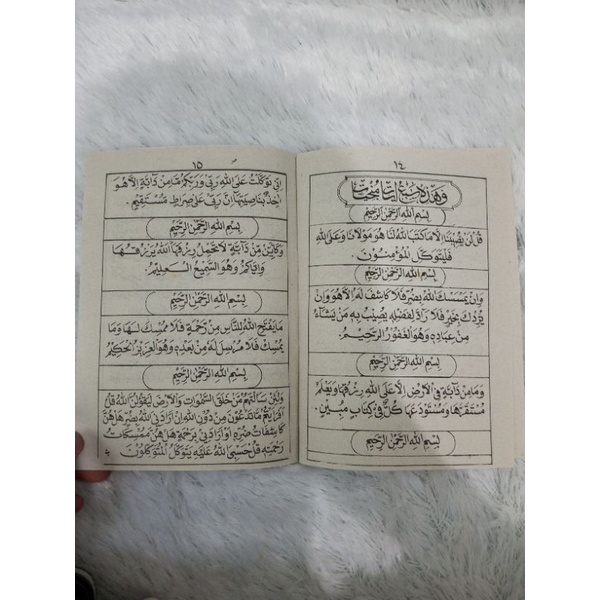 ١٤
وهذه سبع ايات منجيات
بِسْمِ اللهِ الرَّحْمٰنِ الرَّحِيْمِ
قُلْ لَنْ يُّصِيْبَنَا اِلَّا مَا كَتَبَ اللهُ لَنَا هُوَ مَوْلَانَا وَعَلَى اللهِ
فَلْيَتَوَكَّلِ الْمُؤْمِنُوْنَ .
بِسْمِ اللهِ الرَّحْمٰنِ الرَّحِيْمِ
وَاِنْ يَمْسَسْكَ اللهُ بِضُرٍّ فَلَا كَاشِفَ لَهُ اِلَّا هُوَ وَاِنْ
يُرِدْكَ بِخَيْرٍ فَلَا رَادَّ لِفَضْلِهِ يُصِيْبُ بِهِ مَنْ يَشَاءُ
مِنْ عِبَادِهِ وَهُوَ الْغَفُوْرُ الرَّحِيْمُ .
بِسْمِ اللهِ الرَّحْمٰنِ الرَّحِيْمِ
وَمَا مِنْ دَآبَّةٍ فِى الْاَرْضِ اِلَّا عَلَى اللهِ رِزْقُهَا وَيَعْلَمُ
مُسْتَقَرَّهَا وَمُسْتَوْدَعَهَا كُلٌّ فِى كِتَابٍ مُبِيْنٍ .
بِسْمِ اللهِ الرَّحْمٰنِ الرَّحِيْمِ
١٥
اِنِّى تَوَكَّلْتُ عَلَى اللهِ رَبِّى وَرَبِّكُمْ مَا مِنْ دَآبَّةٍ اِلَّا هُوَ
اٰخِذٌ بِنَاصِيَتِهَا اِنَّ رَبِّى عَلَى صِرَاطٍ مُسْتَقِيْمٍ .
بِسْمِ اللهِ الرَّحْمٰنِ الرَّحِيْمِ
وَكَاَيِّنْ مِنْ دَآبَّةٍ لَا تَحْمِلُ رِزْقَهَا اللهُ يَرْزُقُهَا
وَاِيَّاكُمْ وَهُوَ السَّمِيْعُ الْعَلِيْمُ .
بِسْمِ اللهِ الرَّحْمٰنِ الرَّحِيْمِ
مَا يَفْتَحِ اللهُ لِلنَّاسِ مِنْ رَحْمَةٍ فَلَا مُمْسِكَ لَهَا وَمَا
يُمْسِكْ فَلَا مُرْسِلَ لَهُ مِنْ بَعْدِهِ وَهُوَ الْعَزِيْزُ الْحَكِيْمُ
بِسْمِ اللهِ الرَّحْمٰنِ الرَّحِيْمِ
وَلَئِنْ سَاَلْتَهُمْ مَنْ خَلَقَ السَّمٰوَاتِ وَالْاَرْضَ لَيَقُوْلُنَّ اللهُ قُلْ
اَفَرَاَيْتُمْ مَا تَدْعُوْنَ مِنْ دُوْنِ اللهِ اِنْ اَرَادَنِىَ اللهُ بِضُرٍّ هَلْ هُنَّ
كَاشِفَاتُ ضُرِّهِ اَوْ اَرَادَنِى بِرَحْمَةٍ هَلْ هُنَّ مُمْسِكَاتُ
رَحْمَتِهِ قُلْ حَسْبِىَ اللهُ عَلَيْهِ يَتَوَكَّلُ الْمُتَوَكِّلُوْنَ